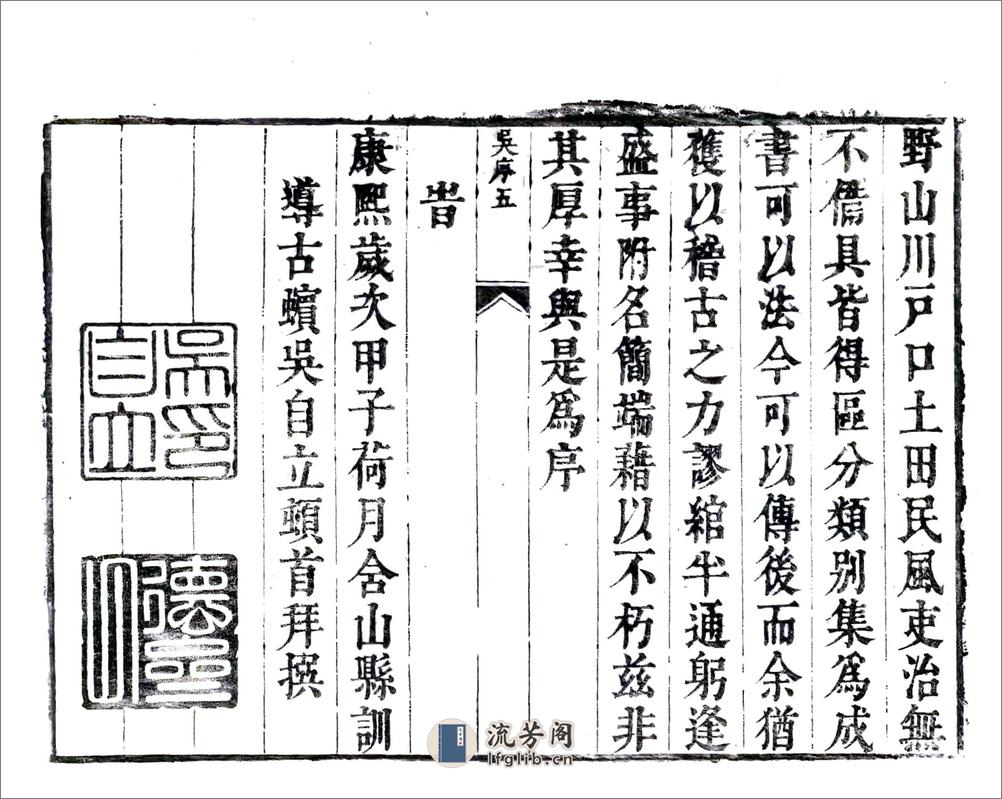 野山川戸口土田民風吏治無
不僃具皆得區分類別集爲成
書可以法今可以傳後而余猶
獲以稽古之力謬綰半通躬逢
盛事附名簡端藉以不朽兹非
其厚幸與是爲序
吳序五
旹
康熙歲次甲子荷月含山縣訓
導古蠙吳自立頓首拜撰
吳印自立
流芳阁
lfglib.cn